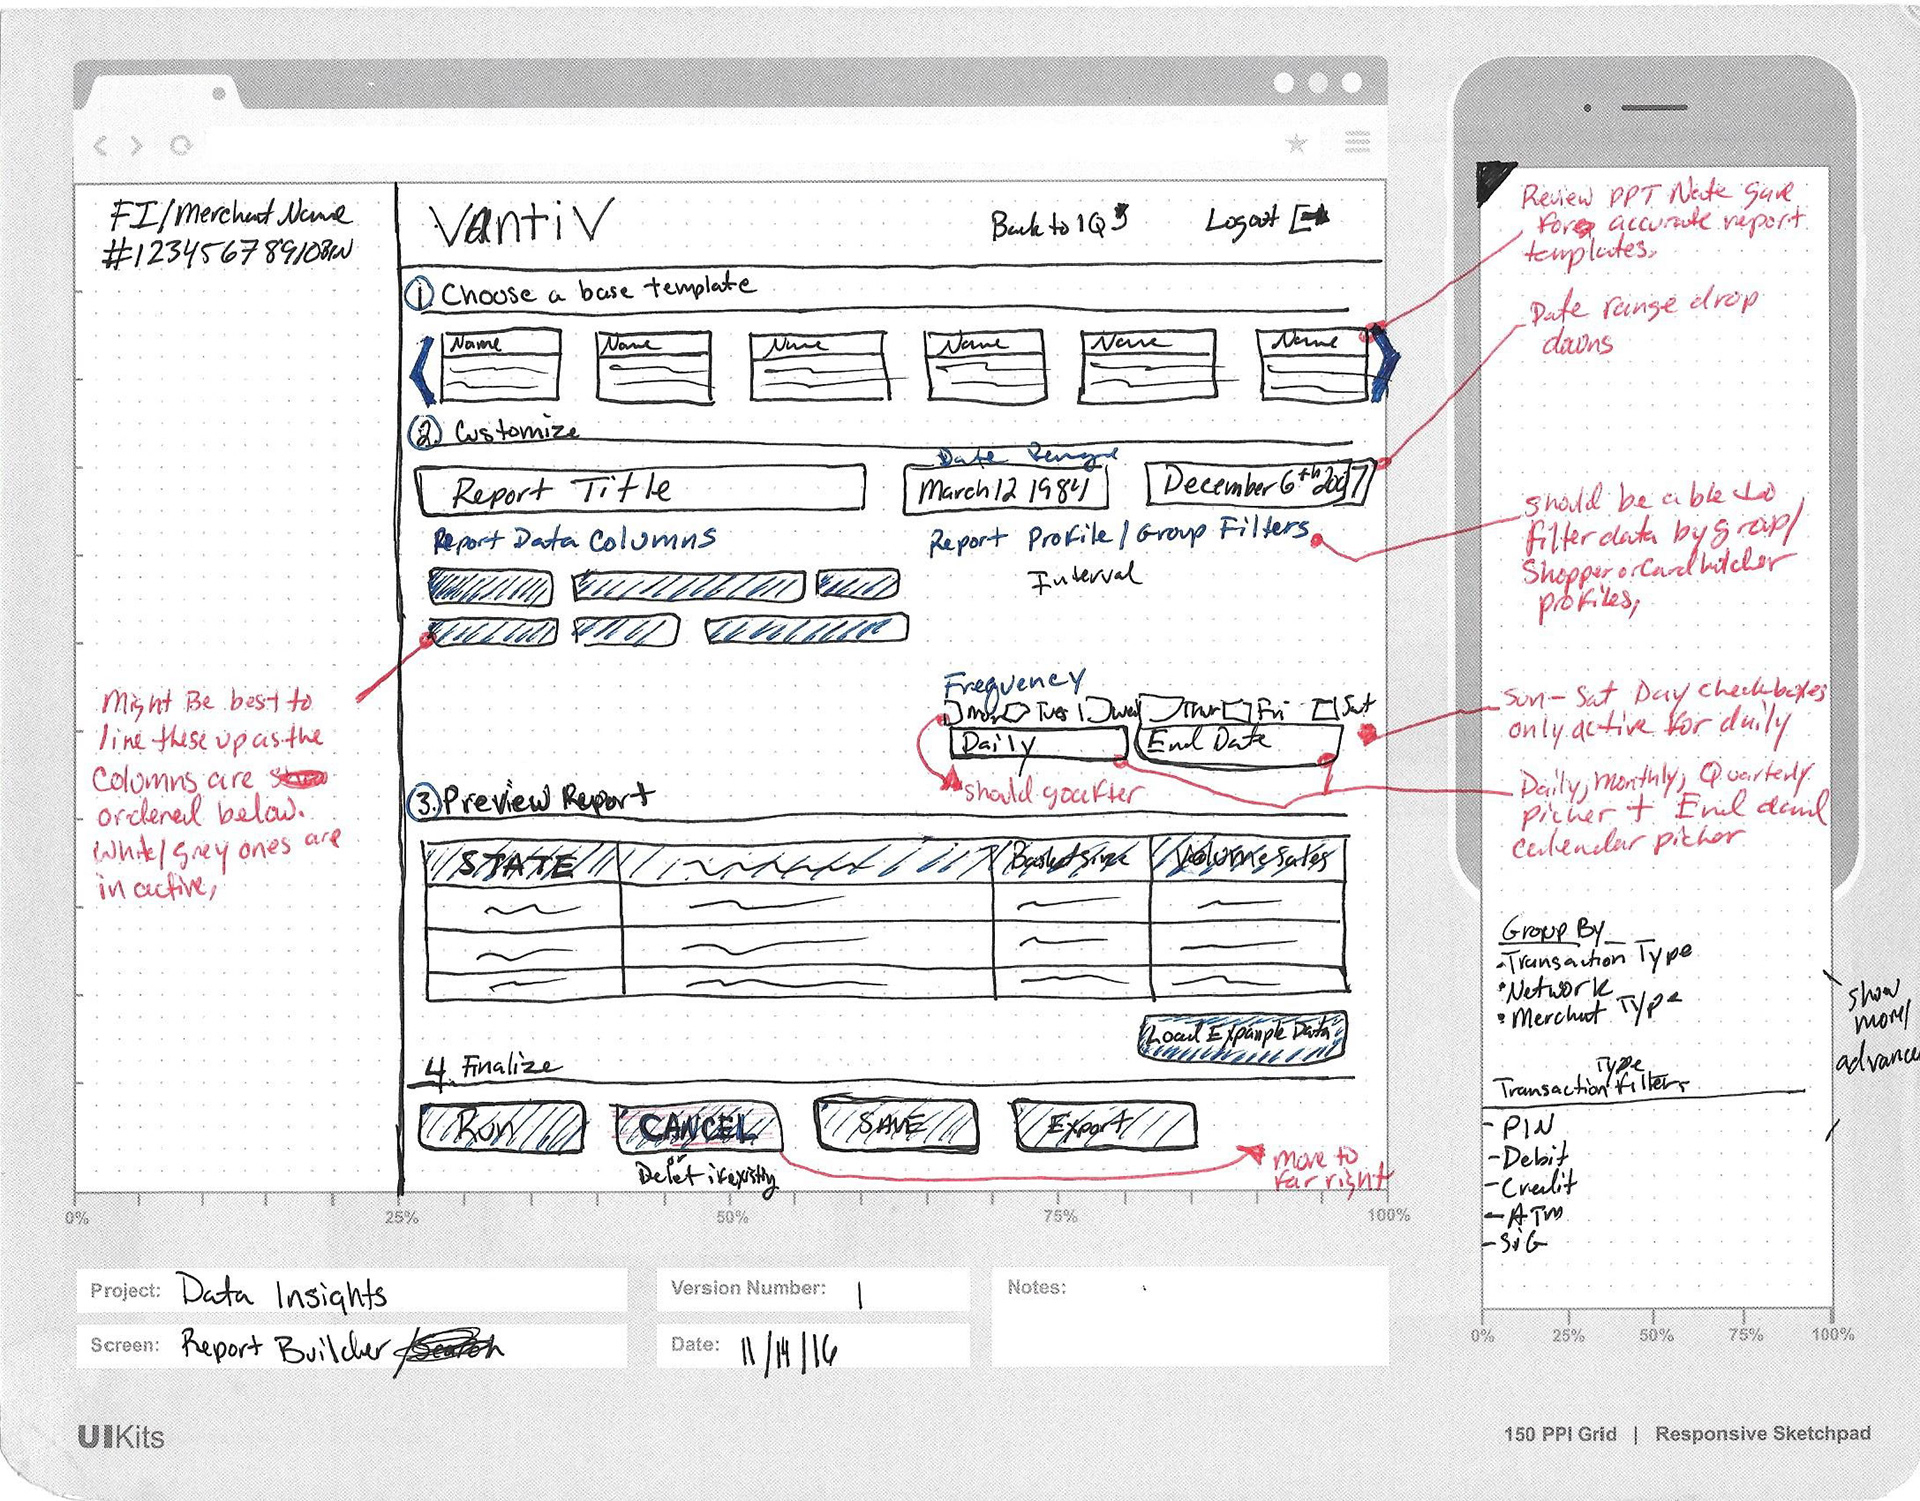 FI/Merchant Name
#12345678910BIN
Vantiv
Back to IQ
Logout
1 Choose a base template
Name
Name
Name
Name
Name
Name
2. Customize
Date Range
Report Title
March 12 1984
December 6th 2007
Report Data Columns
Report Profile/Group Filters
Interval
Frequency
Mon Tues Wed Thur Fri Sat
Daily
End Date
should go after
3. Preview Report
STATE
Basket size
Volume Sales
Load Example Data
4. Finalize
Run
CANCEL
SAVE
Export
Delet if existing
move to
far right
Might Be best to
line these up as the
columns are
ordered below.
White/grey ones are
in active,
Review PPT Nate gave
for accurate report
templates.
Date range drop
downs
should be able to
filter data by group/
Shopper or Card holder
profiles,
Sun-Sat Day checkboxes
only active for daily
Daily, monthly, Quarterly
picher + End
calendar picher
Group By
-Transaction Type
•Network
•Merchant Type
show
more/
advance
Type
Transaction Filters
-PIN
-Debit
-Credit
-ATM
-SIG
0%
25%
50%
75%
100%
0%
25%
50%
75%
100%
Project: Data Insights
Version Number: 1
Notes:
Screen: Report Builder/Search
Date: 11/14/16
UIKits
150 PPI Grid | Responsive Sketchpad